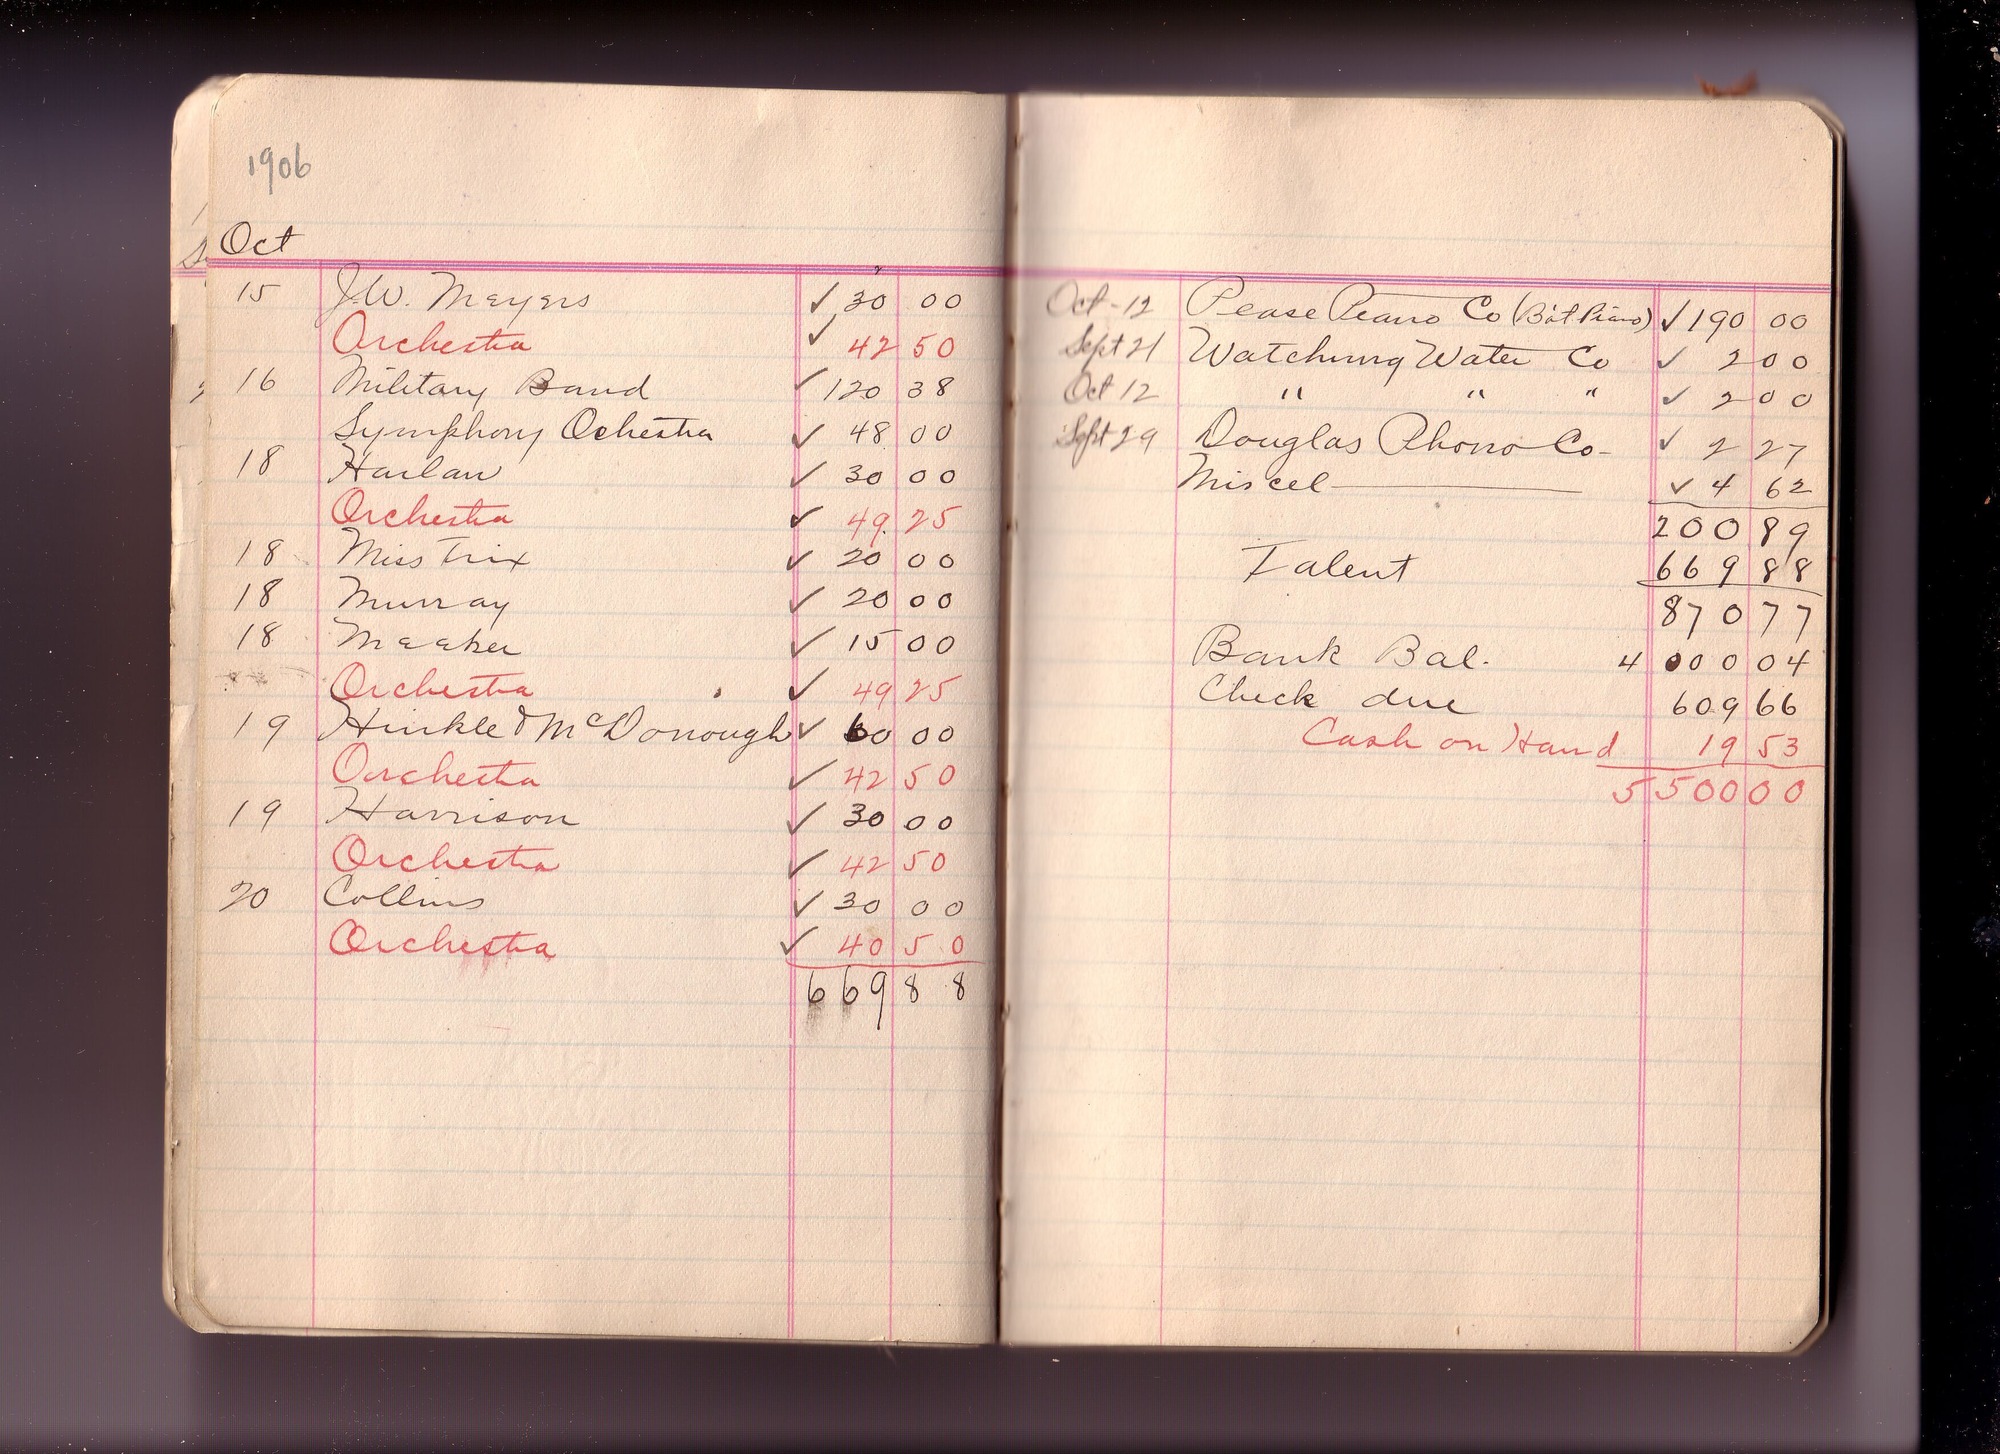 1906
Oct
15 J.W. Meyers ✓ 30 00
Orchestra ✓ 42 50
16 Military Band ✓ 120 38
Symphony Ochestra ✓ 48 00
18 Harlan ✓ 30 00
Orchestra ✓ 49 25
18 Miss Trix ✓ 20 00
18 Murray ✓ 20 00
18 Meeker ✓ 15 00
Orchestra ✓ 49 25
19 Hinkle & McDonough ✓ 60 00
Orchestra ✓ 42 50
19 Harrison ✓ 30 00
Orchestra ✓ 42 50
20 Collins ✓ 30 00
Orchestra ✓ 40 50
669 88
Oct-12 Pease Peano Co (Bat Piano) ✓ 190 00
Sept 21 Watchung Water Co ✓ 2 00
Oct 12 " " " ✓ 2 00
Sept 29 Douglas Phono Co- ✓ 2 27
Miscel ✓ 4 62
200 89
Talent 669 88
870 77
Bank Bal. 4000 04
Check due 609 66
Cash on Hand 19 53
5500 00